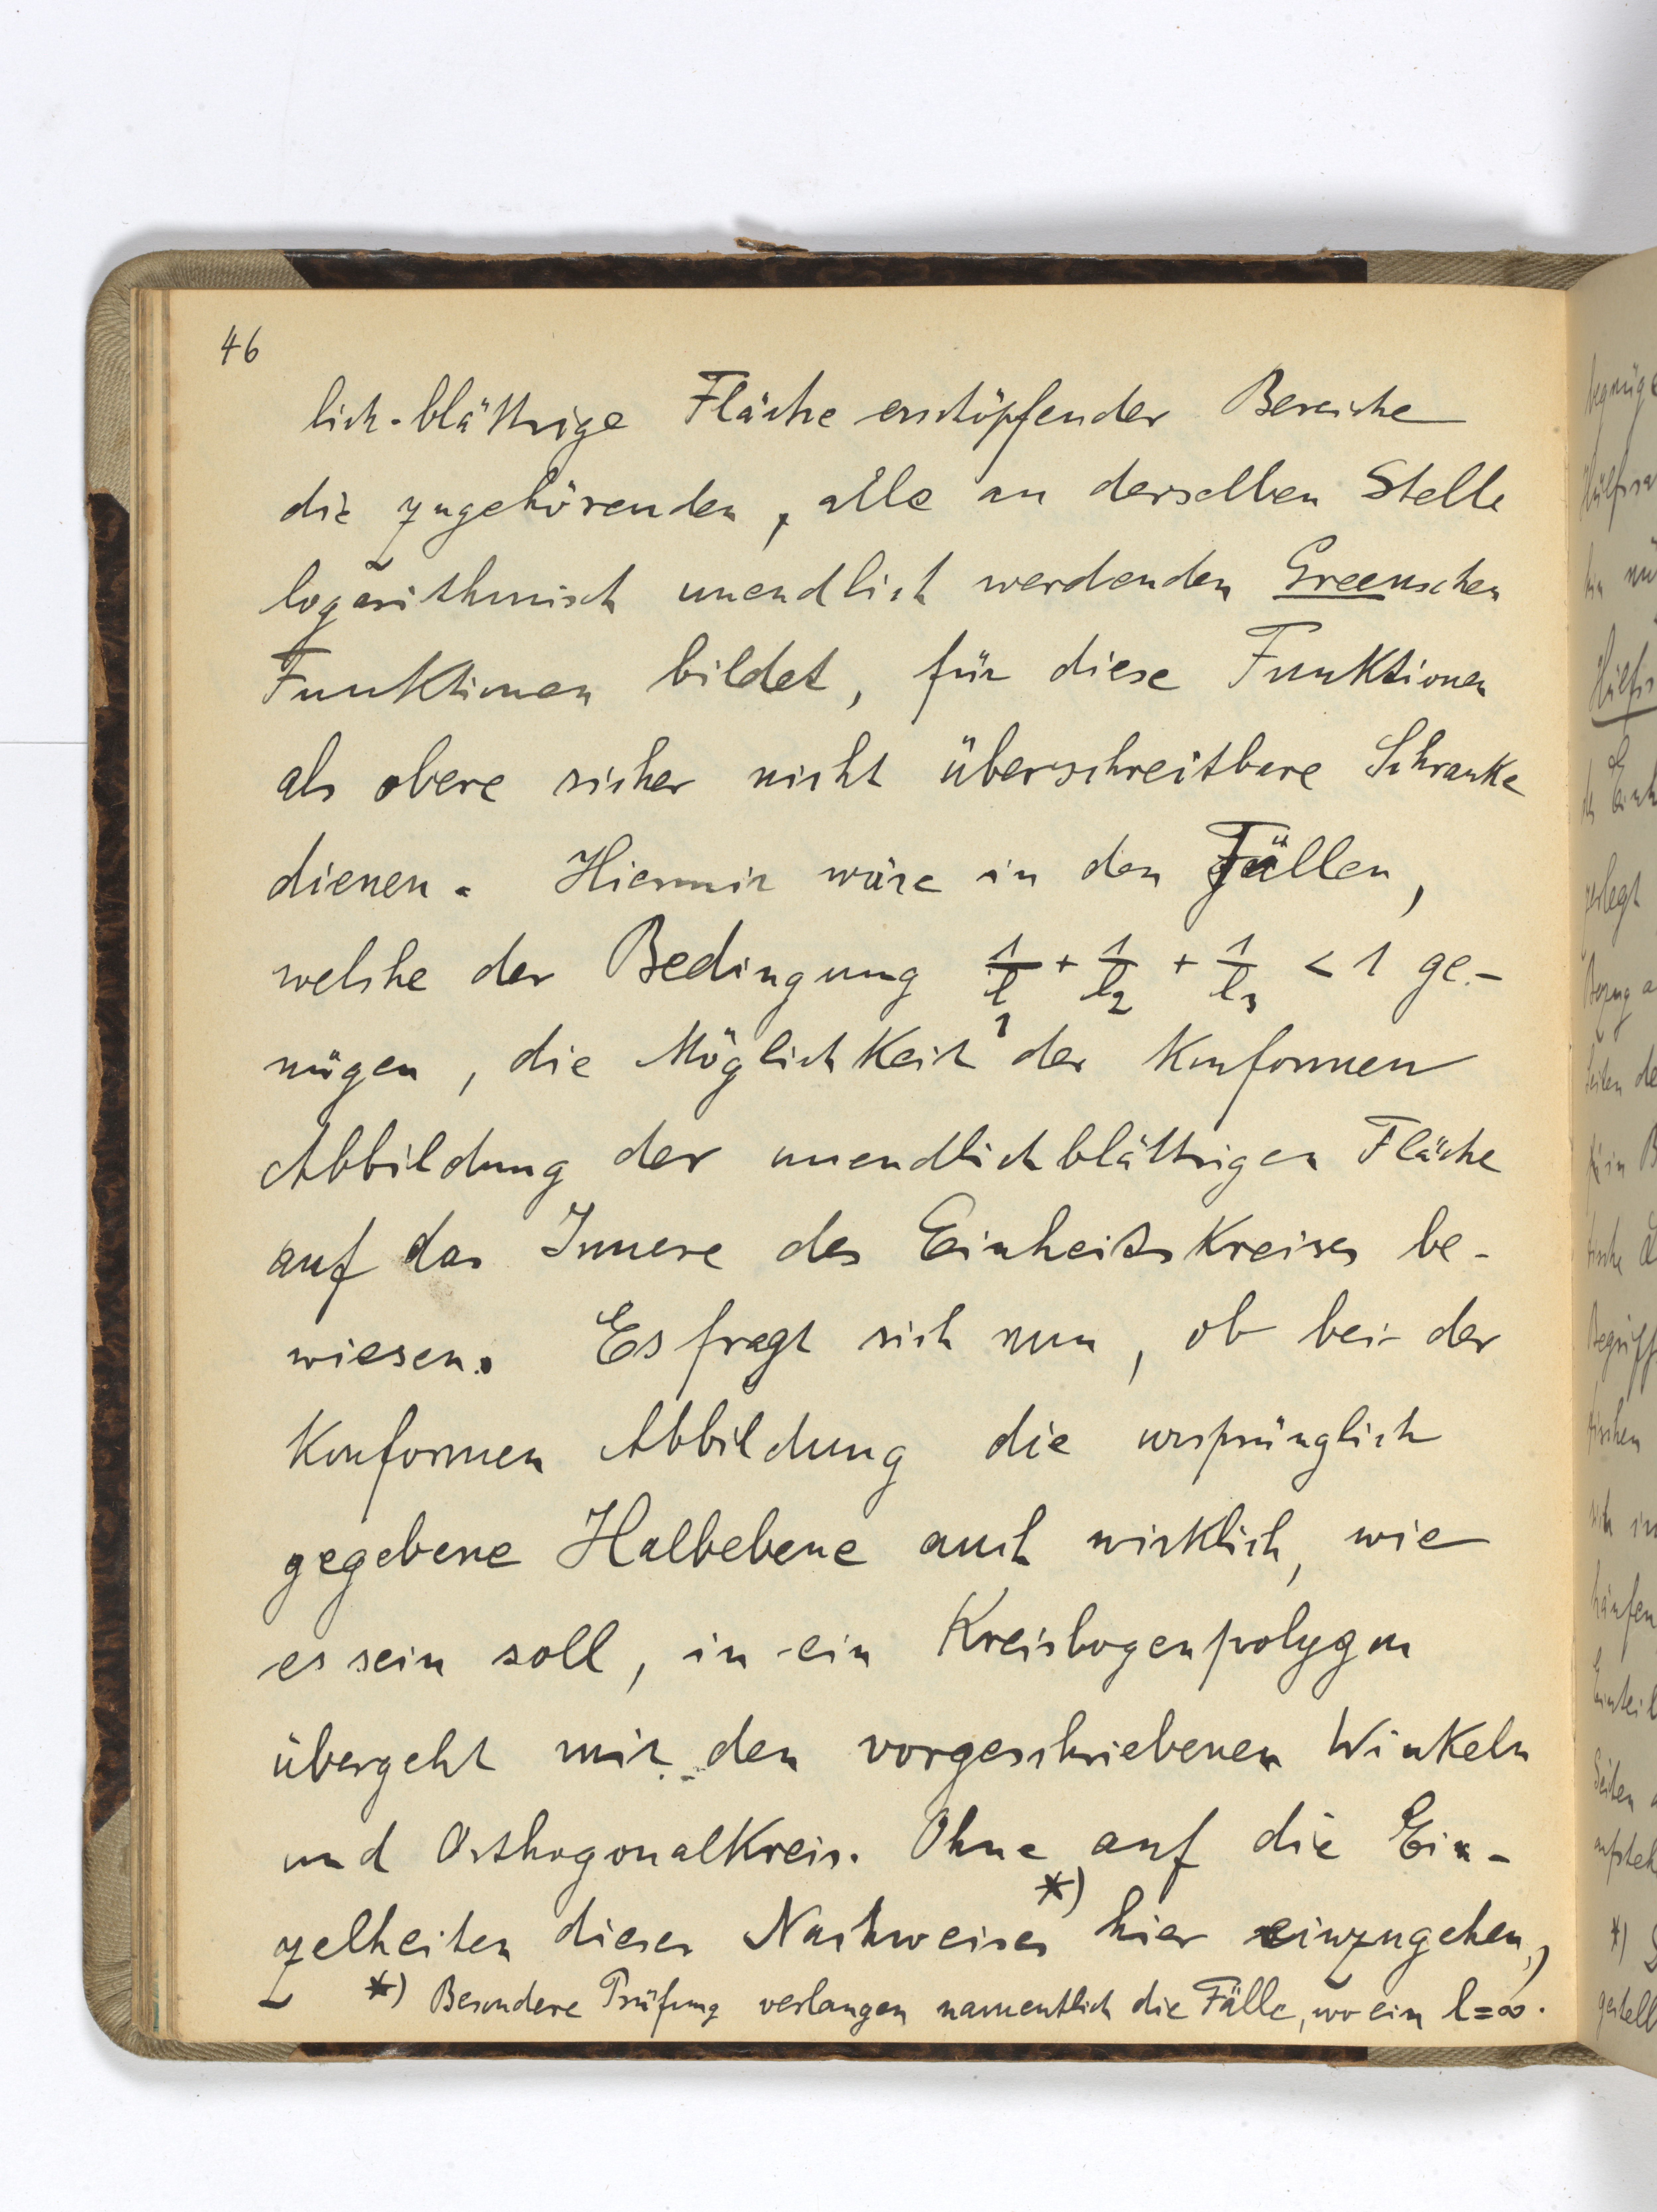 46
lich-blättrige Fläche erschöpfender Bereiche
die zugehörenden, alle an derselben Stelle
logarithmisch unendlich werdenden Greenschen
Funktionen bildet, für diese Funktionen
als obere sicher nicht überschreitbare Schranke
dienen. Hiermit wäre in den Fällen,
welche der Bedingung 1/l₁ + 1/l₂ + 1/l₃ < 1 ge-
nügen, die Möglichkeit der konformen
Abbildung der unendlichblättrigen Fläche
auf das Innere des Einheitskreises be-
wiesen. Es fragt sich nun, ob bei der
konformen Abbildung die ursprünglich
gegebene Halbebene auch wirklich, wie
es sein soll, in ein Kreisbogenpolygon
übergeht mit den vorgeschriebenen Winkeln
und Orthogonalkreis. Ohne auf die Ein-
zelheiten dieses Nachweises *) hier einzugehen,
*) Besondere Prüfung verlangen namentlich die Fälle, wo ein l=∞.